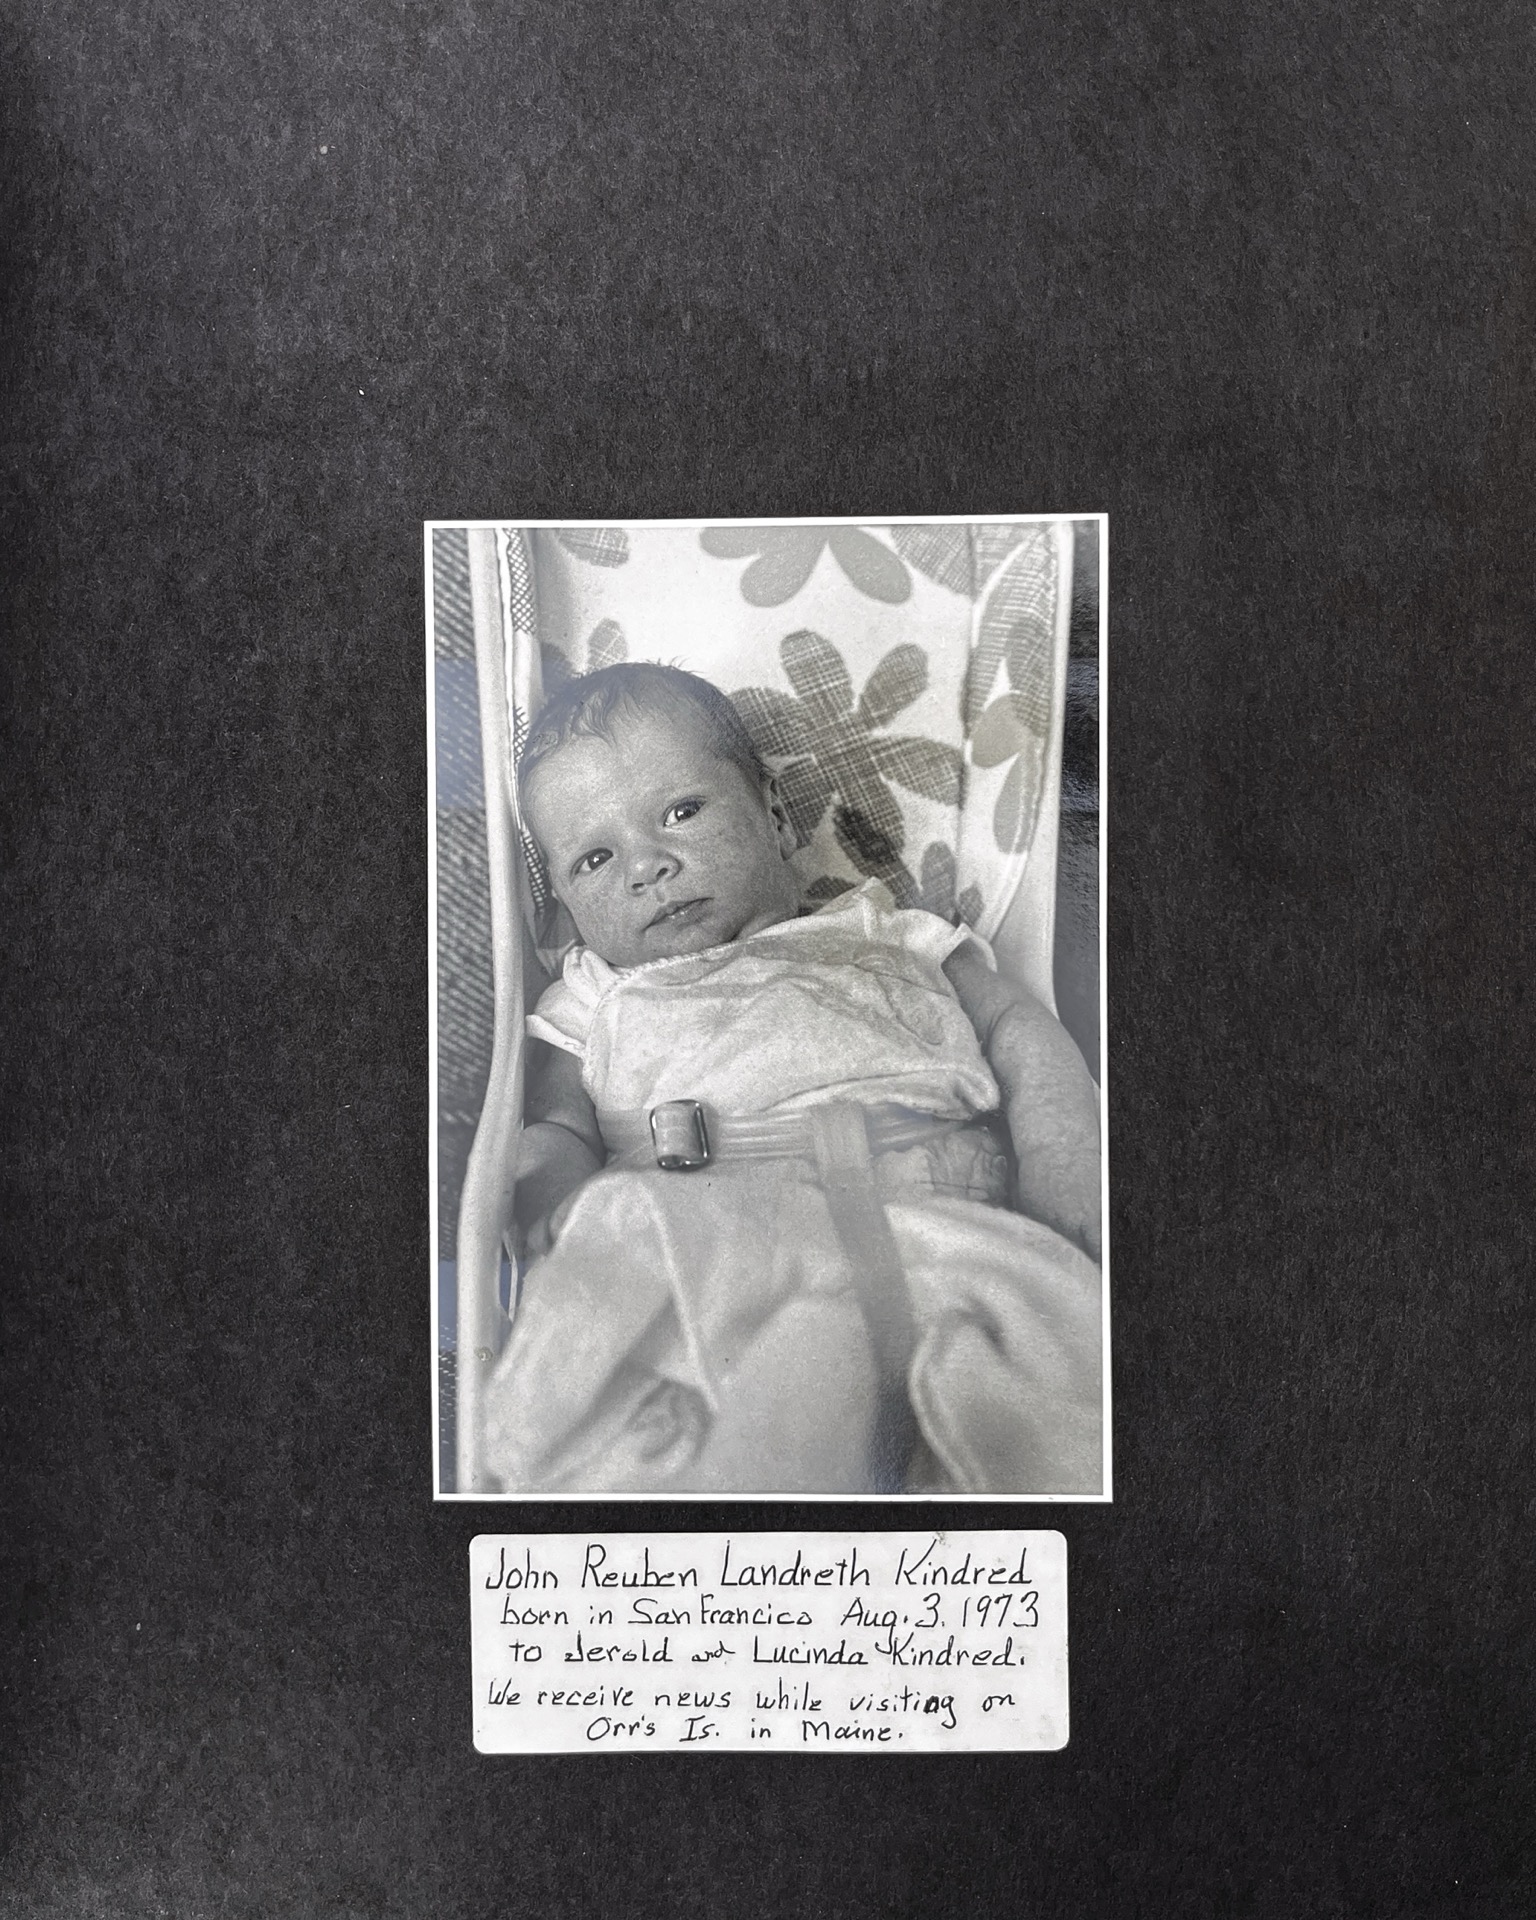 John Reuben Landreth Kindred
born in San Francico Aug. 3. 1973
to Jerold and Lucinda Kindred.
We receive news while visiting on
Orr's Is. in Maine.